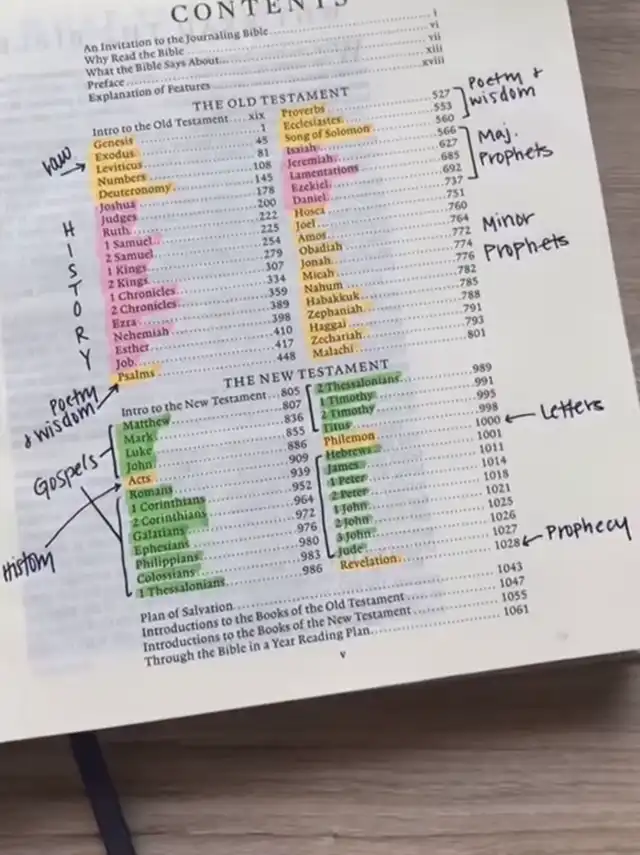 CONTENTS
An Invitation to the Journaling Bible i
Why Read the Bible vi
What the Bible Says About vii
Preface xiii
Explanation of Features xviii
THE OLD TESTAMENT
Intro to the Old Testament xix
Genesis 1
Exodus 45
Leviticus 81
Numbers 108
Deuteronomy 145
Joshua 178
Judges 200
Ruth 222
1 Samuel 225
2 Samuel 254
1 Kings 279
2 Kings 307
1 Chronicles 334
2 Chronicles 359
Ezra 389
Nehemiah 398
Esther 410
Job 417
Psalms 448
Law
HISTORY
Poetry
& wisdom
Proverbs 527
Ecclesiastes 553
Song of Solomon 560
Isaiah 566
Jeremiah 627
Lamentations 685
Ezekiel 692
Daniel 737
Hosea 751
Joel 760
Amos 764
Obadiah 772
Jonah 774
Micah 776
Nahum 782
Habakkuk 785
Zephaniah 788
Haggai 791
Zechariah 793
Malachi 801
Poetry &
wisdom
Maj.
Prophets
Minor
Prophets
THE NEW TESTAMENT
Intro to the New Testament 805
Matthew 807
Mark 836
Luke 855
John 886
Acts 909
Romans 939
1 Corinthians 952
2 Corinthians 964
Galatians 972
Ephesians 976
Philippians 980
Colossians 983
1 Thessalonians 986
Gospels
History
2 Thessalonians 989
1 Timothy 991
2 Timothy 995
Titus 998
Philemon 1000
Hebrews 1001
James 1011
1 Peter 1014
2 Peter 1018
1 John 1021
2 John 1025
3 John 1026
Jude 1027
Revelation 1028
Letters
Prophecy
Plan of Salvation 1043
Introductions to the Books of the Old Testament 1047
Introductions to the Books of the New Testament 1055
Through the Bible in a Year Reading Plan 1061
v